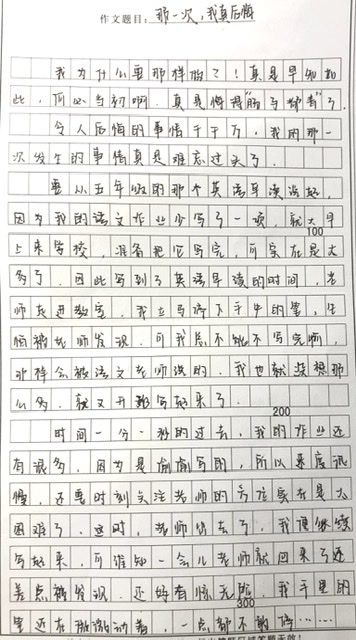 作文题目：那一次，我真后悔
我为什么要那样做了！真是早知如
此，何必当初啊。真是悔得"肠子都青"了
令人后悔的事情千千万，我的那一
次发生的事情真是难忘过头了。
要从五年级的那个英语早读说起，
因为我的语文作业少写了一项，就大早
100
上来学校，准备把它写完，可实在是太
多了。因此写到了英语早读的时间，老
师走进教室，我立马停下手中的笔，生
怕被老师发现。可我总不能不写完啊，
那样会被语文老师说的。我也就没想那
么多，就又开始写起来了。
200
时间一分一秒的过去，我的作业还
有很多，因为是偷偷写的，所以速度很
慢，还要时刻关注老师的方位实在是太
困难了。这时，老师出去了，我便继续
写起来，可谁知一会儿老师就回来了还
差点被发现。还好有惊无险，我手里的
300
笔还在跳动着，一点都不